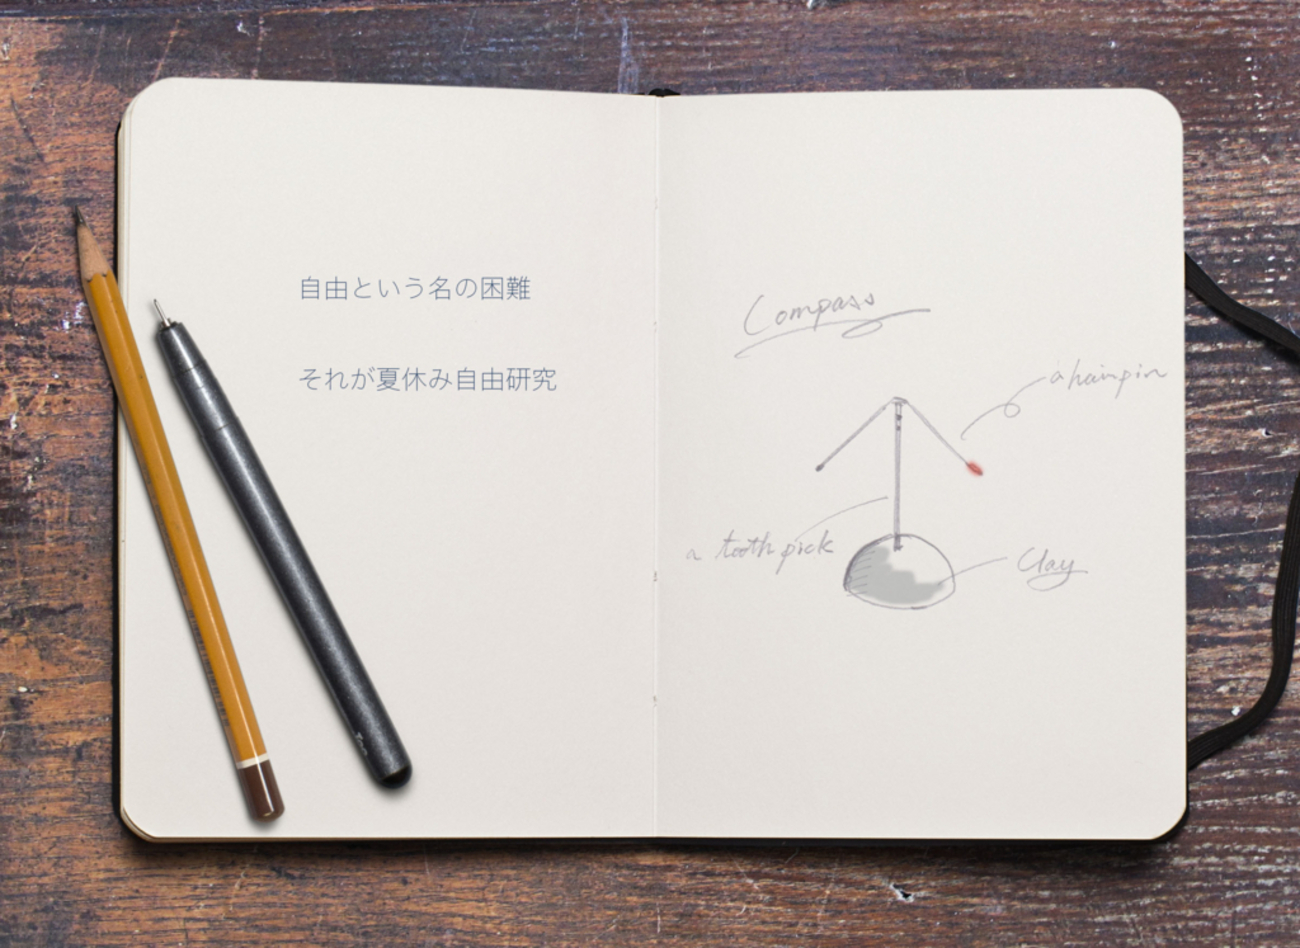 自由という名の困難
それが夏休み自由研究
Compass
a hairpin
a toothpick
Clay